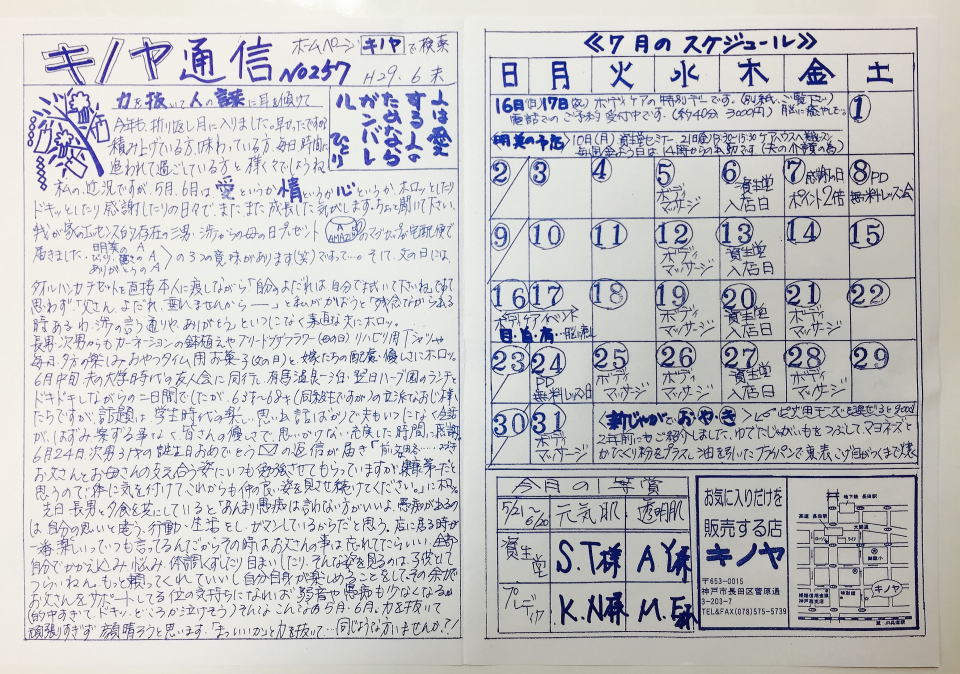 キノヤ通信 No257
ホームページ キノヤ で検索
H29.6末
力を抜いて人の言葉に耳を傾けて
人は愛
する人の
ためなら
ガンバレ
ル ひとり
今年も、折り返し月に入りました。早かったですか
積み上げている方、味わっている方、毎日時間に
追われて過ごしている方と様々でしょうね。
私の近況ですが、5月、6月は愛というか情というか心というか、ホロッとしたり
ドキッとしたり感謝したりの日々で、またまた成長した気がします。ちょっと聞いて下さい。
我が家のエッセンス的存在の三男・渉からの母の日プレゼント
のマグカップが宅配便で
届きました。
ありがとうのA
の3つの意味があります(笑)ですって…。そして、父の日には、
タオルハンカチセットを直接本人に渡しながら「自分のよだれは、自分でお拭いて下さいね。」で
思わず「父さん、よだれ、垂れませんから――」と私がかばおうと「残念ながらある
時あるわ、渉の言う通りや、ありがとう」といつになく素直な夫にホロッ。
長男、次男からもカーネーションの鉢植えやプリザーブドフラワー(母の日)リハビリ用Tシャツや
毎日、夕方の楽しみおやつタイム用お菓子(父の日)と、嫁たちの配慮・優しさにホロッ。
6月中旬、夫の大学時代の友人会に同行し、有馬温泉一泊・翌日ハーブ園のランチと
ドキドキしながらの二日間でしたが、63才～68才(同級生ですが)の立派なおじ様
たちですが、話題は、学生時代の楽しい思い出話ばかりで夫もいつになく会話
がはずみ案ずる事なく、皆さんの優しさで、思いがけない充実した時間に感謝
6月24日、次男31才の誕生日おめでとう✉の返信が届き
お父さんとお母さんの支え合う姿にいつも勉強させてもらっていますが、大変だと
思うので、体に気を付けてこれからも仲の良い姿を見せ続けてください。」にホロッ
先日、長男と夕食を共にしていると「あんまり愚痴は言わない方がいいよ、愚痴があるの
は、自分の思いと違う、行動・生活をし、ガマンしているからだと思う、店に居る時が
一番楽しいっていつも言ってるんだからその時はお父さんの事は忘れてたらいい、全部
自分でかかえ込み悩み、体調くずしたり目まいしたり、そんな姿を見るのは子供として
つらいねん、もっと頼ってくれていいし自分自身が楽しめることをしてその余力で
お父さんをサポートしてる位の気持ちになれば
的中すぎて、ドキッ、どころか泣けそう)そんなこんなの5月、6月、力を抜いて
頑張りすぎず顔晴ろうと思います。「まっいいか」と力を抜いて…同じような方いませんか?
≪7月のスケジュール≫
日 月 火 水 木 金 土
16日(日)17日(祝)ボディケアの特別デーです。(別紙、ご覧下さい)
電話でのご予約受付中です。(約40分3000円)
①
10日(月)資生堂セミナー
毎週金よう日は14時からの
2 3 4 5 6 7 8
ボディマッサージ
資生堂入店日
感謝の日ポイント2倍
PD無料レッスン会
9 10 11 12 13 14 15
ボディマッサージ
資生堂入店日
16 17 18 19 20 21 22
ボディケアイベント
ボディマッサージ
資生堂入店日
ボディマッサージ
23 24 25 26 27 28 29
PD無料レッスン日
ボディマッサージ
ボディマッサージ
資生堂入店日
ボディマッサージ
30 31
ボディマッサージ
<新じゃがでおやき>
2年前にもご紹介しました、ゆでたじゃがいもをつぶしてマヨネーズと
かたくり粉をプラス、油を引いたフライパンで裏表、こげ目がつくまで焼く
今月の1等賞
5/21～6/20 元気肌 透明肌
資生堂 S.T様 A.Y様
プレディア K.N様 M.E様
お気に入りだけを
販売する店
キノヤ
〒653-0015
神戸市長田区菅原通
3-203-7
TEL&FAX(078)575-5739
地下鉄 長田駅
高速 長田駅
キノヤ